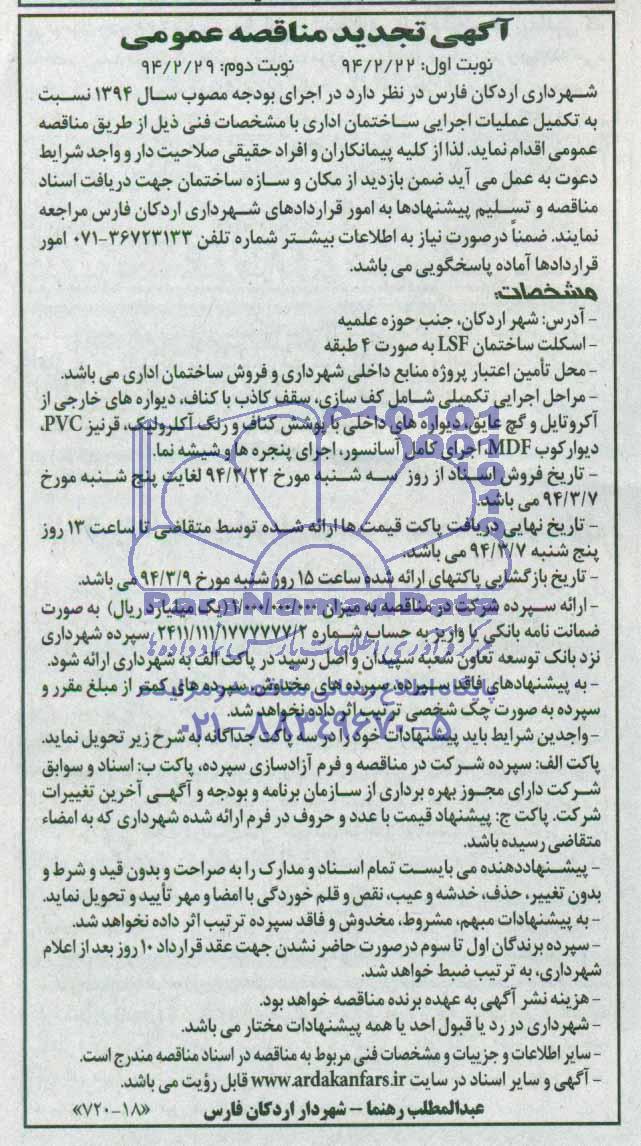 آگهی تجدید مناقصه عمومی
نوبت اول: ۹۴/۲/۲۲ نوبت دوم: ۹۴/۲/۲۹
شهرداری اردکان فارس در نظر دارد در اجرای بودجه مصوب سال ۱۳۹۴ نسبت
به تکمیل عملیات اجرایی ساختمان اداری با مشخصات فنی ذیل از طریق مناقصه
عمومی اقدام نماید. لذا از کلیه پیمانکاران و افراد حقیقی صلاحیت دار و واجد شرایط
دعوت به عمل می آید ضمن بازدید از مکان و سازه ساختمان جهت دریافت اسناد
مناقصه و تسلیم پیشنهادها به امور قراردادهای شهرداری اردکان فارس مراجعه
نمایند. ضمناً درصورت نیاز به اطلاعات بیشتر شماره تلفن ۳۶۷۲۳۱۳۳-۰۷۱ امور
قراردادها آماده پاسخگویی می باشد.
مشخصات:
- آدرس: شهر اردکان، جنب حوزه علمیه
- اسکلت ساختمان LSF به صورت ۴ طبقه
- محل تأمین اعتبار پروژه منابع داخلی شهرداری و فروش ساختمان اداری می باشد.
- مراحل اجرایی تکمیلی شامل کف سازی، سقف کاذب با کناف، دیواره های خارجی از
آکروتایل و گچ عایق، دیواره های داخلی با پوشش کناف و رنگ آکلرولیک، قرنیز PVC،
دیوارکوب MDF، اجرای کامل آسانسور، اجرای پنجره ها و شیشه نما.
- تاریخ فروش اسناد از روز سه شنبه مورخ ۹۴/۲/۲۲ لغایت پنج شنبه مورخ
۹۴/۳/۷ می باشد.
- تاریخ نهایی دریافت پاکت قیمت ها ارائه شده توسط متقاضی تا ساعت ۱۳ روز
پنج شنبه ۹۴/۳/۷ می باشد.
- تاریخ بازگشایی پاکتهای ارائه شده ساعت ۱۵ روز شنبه مورخ ۹۴/۳/۹ می باشد.
- ارائه سپرده شرکت در مناقصه به میزان ۱/۰۰۰/۰۰۰/۰۰۰ (یک میلیارد ریال) به صورت
ضمانت نامه بانکی یا واریز به حساب شماره ۲۴۱۱/۱۱۱/۱۷۷۷۷۷۷/۲ سپرده شهرداری
نزد بانک توسعه تعاون شعبه سپیدان و اصل رسید در پاکت الف به شهرداری ارائه شود.
- به پیشنهادهای فاقد سپرده، سپرده های مخدوش، سپرده های کمتر از مبلغ مقرر و
سپرده به صورت چک شخصی ترتیب اثر داده نخواهد شد.
- واجدین شرایط باید پیشنهادات خود را در سه پاکت جداگانه به شرح زیر تحویل نماید.
پاکت الف: سپرده شرکت در مناقصه و فرم آزادسازی سپرده، پاکت ب: اسناد و سوابق
شرکت دارای مجوز بهره برداری از سازمان برنامه و بودجه و آگهی آخرین تغییرات
شرکت. پاکت ج: پیشنهاد قیمت با عدد و حروف در فرم ارائه شده شهرداری که به امضاء
متقاضی رسیده باشد.
- پیشنهاددهنده می بایست تمام اسناد و مدارک را به صراحت و بدون قید و شرط و
بدون تغییر، حذف، خدشه و عیب، نقص و قلم خوردگی با امضا و مهر تأیید و تحویل نماید.
- به پیشنهادات مبهم، مشروط، مخدوش و فاقد سپرده ترتیب اثر داده نخواهد شد.
- سپرده برندگان اول تا سوم درصورت حاضر نشدن جهت عقد قرارداد ۱۰ روز بعد از اعلام
شهرداری، به ترتیب ضبط خواهد شد.
- هزینه نشر آگهی به عهده برنده مناقصه خواهد بود.
- شهرداری در رد یا قبول احد یا همه پیشنهادات مختار می باشد.
- سایر اطلاعات و جزییات و مشخصات فنی مربوط به مناقصه در اسناد مناقصه مندرج است.
- آگهی و سایر اسناد در سایت www.ardakanfars.ir قابل رؤیت می باشد.
عبدالمطلب رهنما - شهردار اردکان فارس «۱۸-۷۲۰»
ParsNamadData
مرکز فرآوری اطلاعات پارس نماد داده ها
پایگاه اطلاع رسانی مناقصه و مزایده
۰۲۱-۸۸۳۴۹۶۷۰-۵